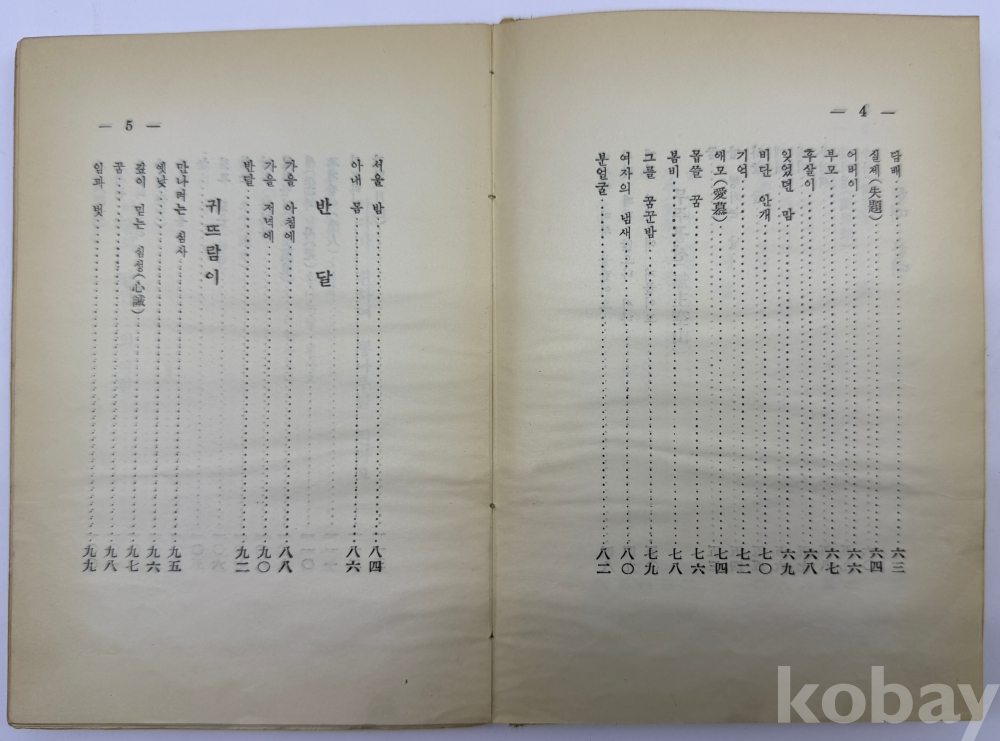 — 4 —
담배 六三
실제(失題) 六四
어버이 六六
부모 六七
후살이 六八
잊었던 맘 六九
비단 안개 七〇
기억 七二
애모(愛慕) 七四
몹쓸 꿈 七六
봄비 七八
그를 꿈꾼밤 七九
여자의 냄새 八〇
분얼굴 八二
— 5 —
서울 밤 八四
아내 몸 八六
반달
가을 아침에 八八
가을 저녁에 九〇
반달 九二
귀뜨람이
만나려는 심사 九五
옛낯 九六
깊이 믿는 심성(心誠) 九七
꿈 九八
임과 벗 九九
kobay